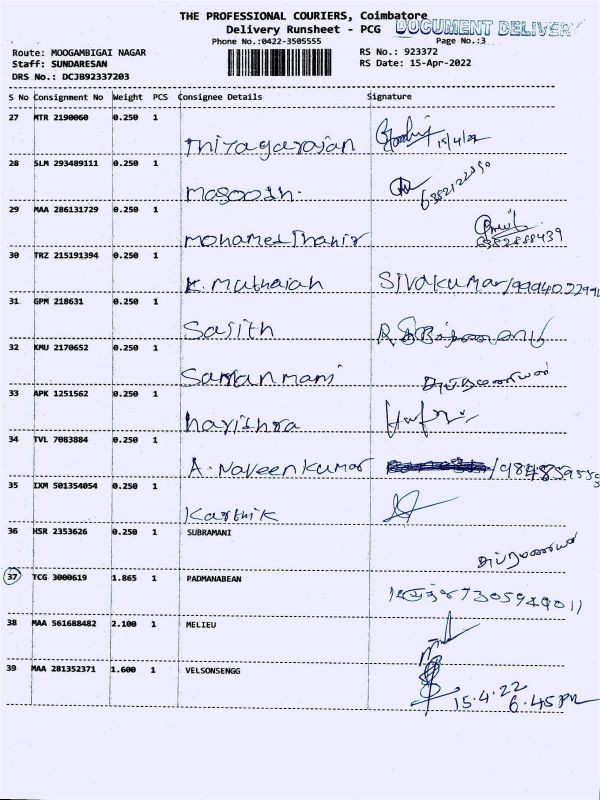 THE PROFESSIONAL COURIERS, Coimbatore
Delivery Runsheet - PCG
DOCUMENT DELIVERY
Phone No.:0422-3505555
Page No.:3
Route: MOOGAMBIGAI NAGAR
RS No.: 923372
Staff: SUNDARESAN
RS Date: 15-Apr-2022
DRS No.: DCJB92337203
S No Consignment No Weight PCS Consignee Details Signature
27 MTR 2190060 0.250 1
Thiyagarajan 15/4/22
28 SLM 293489111 0.250 1
Masoodh.
29 MAA 286131729 0.250 1
Mohamed Thahir
30 TRZ 215191394 0.250 1
K. Muthaiah Sivakumar/
31 GPM 218631 0.250 1
Sajith
32 KMU 2170652 0.250 1
சுப்ரமணியன்
33 APK 1251562 0.250 1
harithra
34 TVL 7083884 0.250 1
A. Naveen kumar
35 IXM 501354054 0.250 1
Karthik
36 HSR 2353626 0.250 1 SUBRAMANI
சுப்ரமணியன்
37 TCG 3000619 1.865 1 PADMANABEAN
7305949011
38 MAA 561688482 2.100 1 MELIEU
39 MAA 281352371 1.600 1 VELSONSENGG
15.4.22
6.45 PM